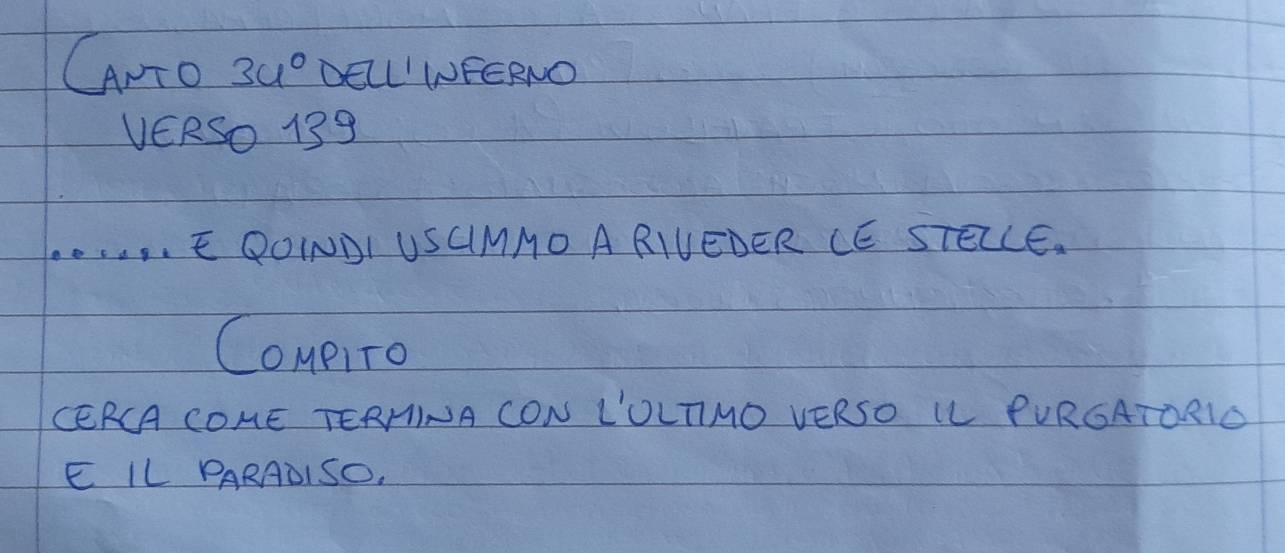 CANTO 34° DELL'INFERNO
VERSO 139
....... E QUINDI USCIMMO A RIVEDER LE STELLE.
COMPITO
CERCA COME TERMINA CON L'ULTIMO VERSO IL PURGATORIO
E IL PARADISO.